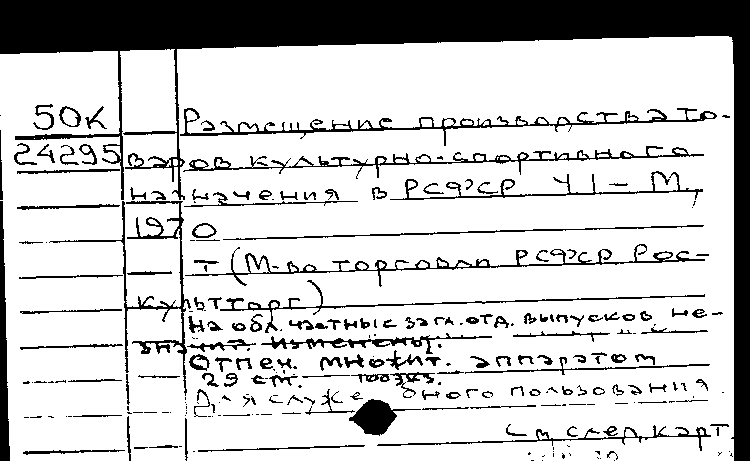 50К Размещение производства то-
24295 варов культурно-спортивного
назначения в РСФСР Ч I – М.,
1970
т (М-во торговли РСФСР Рос-
культторг)
На обл. частные загл. отд. выпусков не-
значит. изменены.
Отпеч. множит. аппаратом
29 см. 100экз.
Для служебного пользования
См. след. карт.